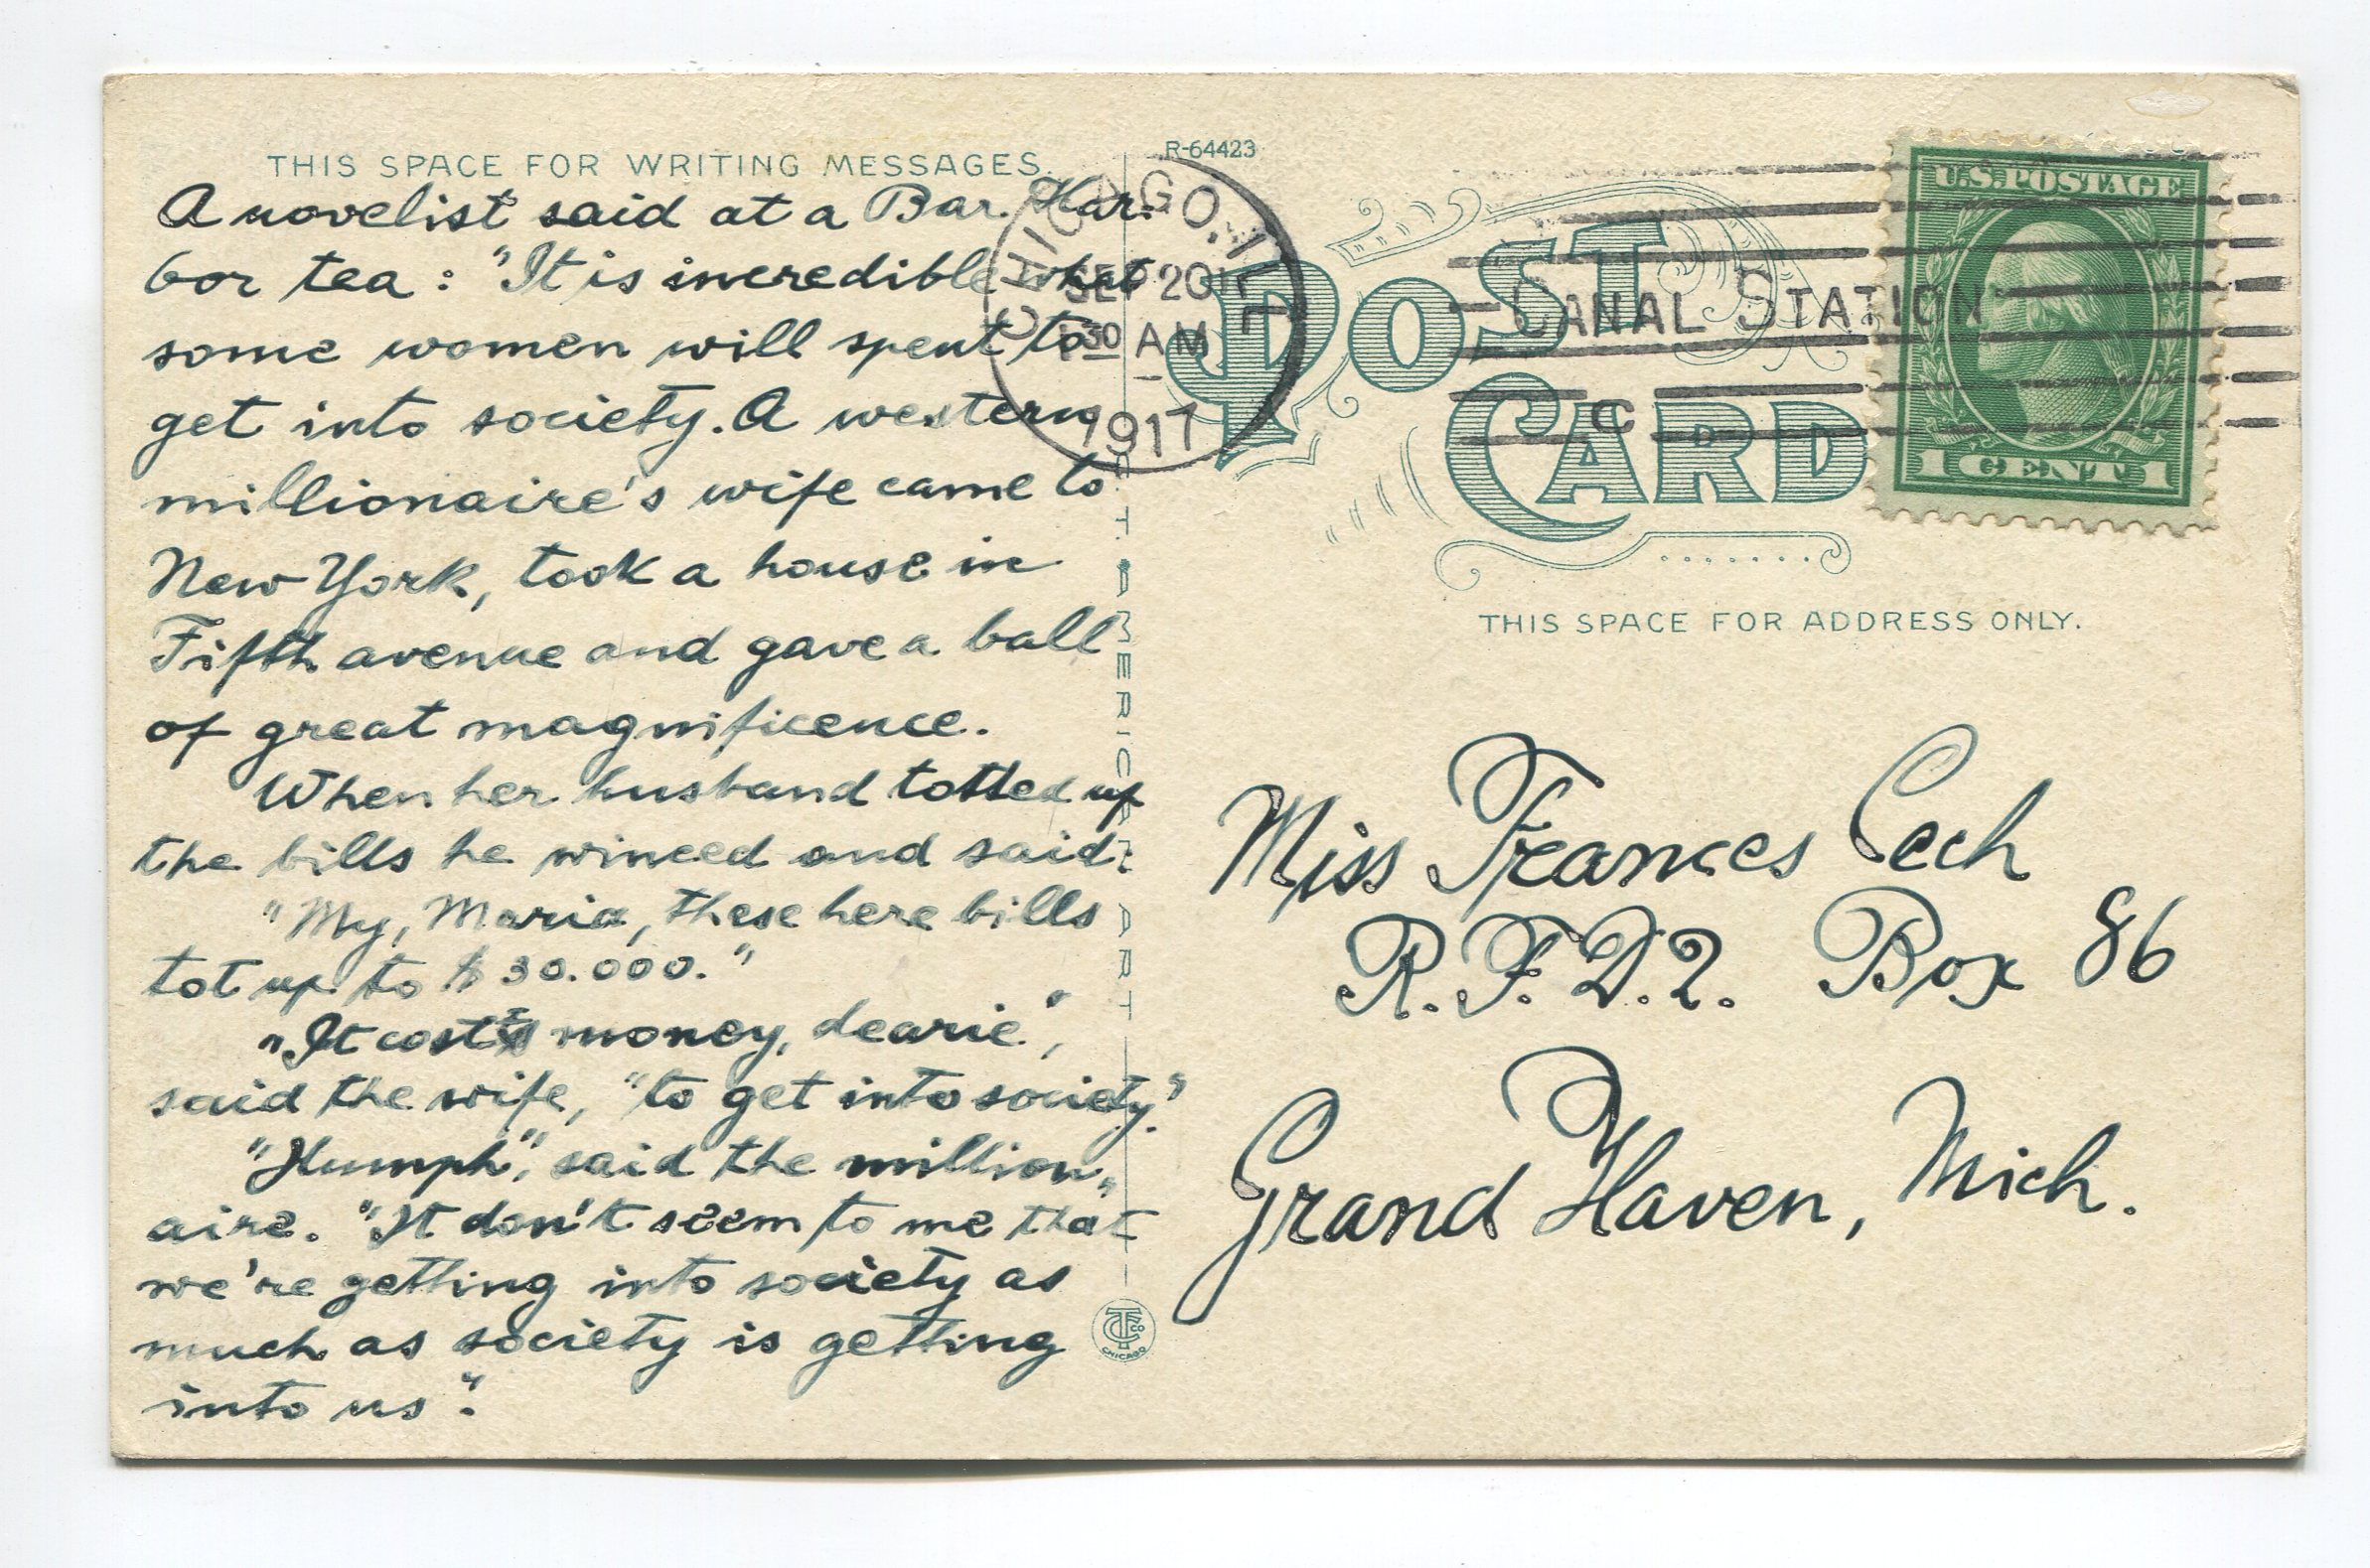 THIS SPACE FOR WRITING MESSAGES.
A novelist said at a Bar. Har.
bor tea : "It is incredible what
some women will spent to
get into society. A western
millionaire's wife came to
New York, took a house in
Fifth avenue and gave a ball
of great magnificence.
When her husband totted up
the bills he winced and said:
"My, Maria, these here bills
tot up to $30.000."
"It costs money, dearie",
said the wife, "to get into society."
"Humph", said the million„
aire. "It don't seem to me that
we're getting into society as
much as society is getting
into us".
R-64423
CHICAGO, ILL
SEP 20
30 AM
1917
C.T. AMERICAN ART
CHICAGO
POST
CARD
CANAL STATION
C
U.S. POSTAGE
1 CENT 1
THIS SPACE FOR ADDRESS ONLY.
Miss Frances Cech
R.F.D.2. Box 86
Grand Haven, Mich.